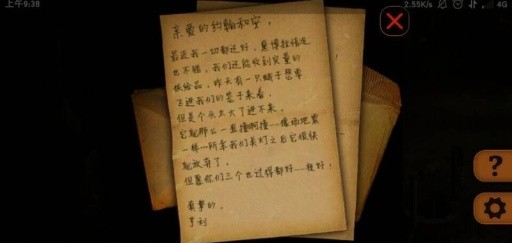 上午9:38
2.55K/s
4G
亲爱的约翰和安，
最近我一切都还好，奥博拉诺达
也不错，我们还能收到定量的
供给品，昨天有一只蛾子想要
飞进我们的盒子来着，
但是个头太大了进不来，
它就那么一直撞啊撞……像场地震
一样……所幸我们关灯之后它很快
就放弃了，
但愿你们三个也过得都好……挺好！
真挚的，
亨利
?